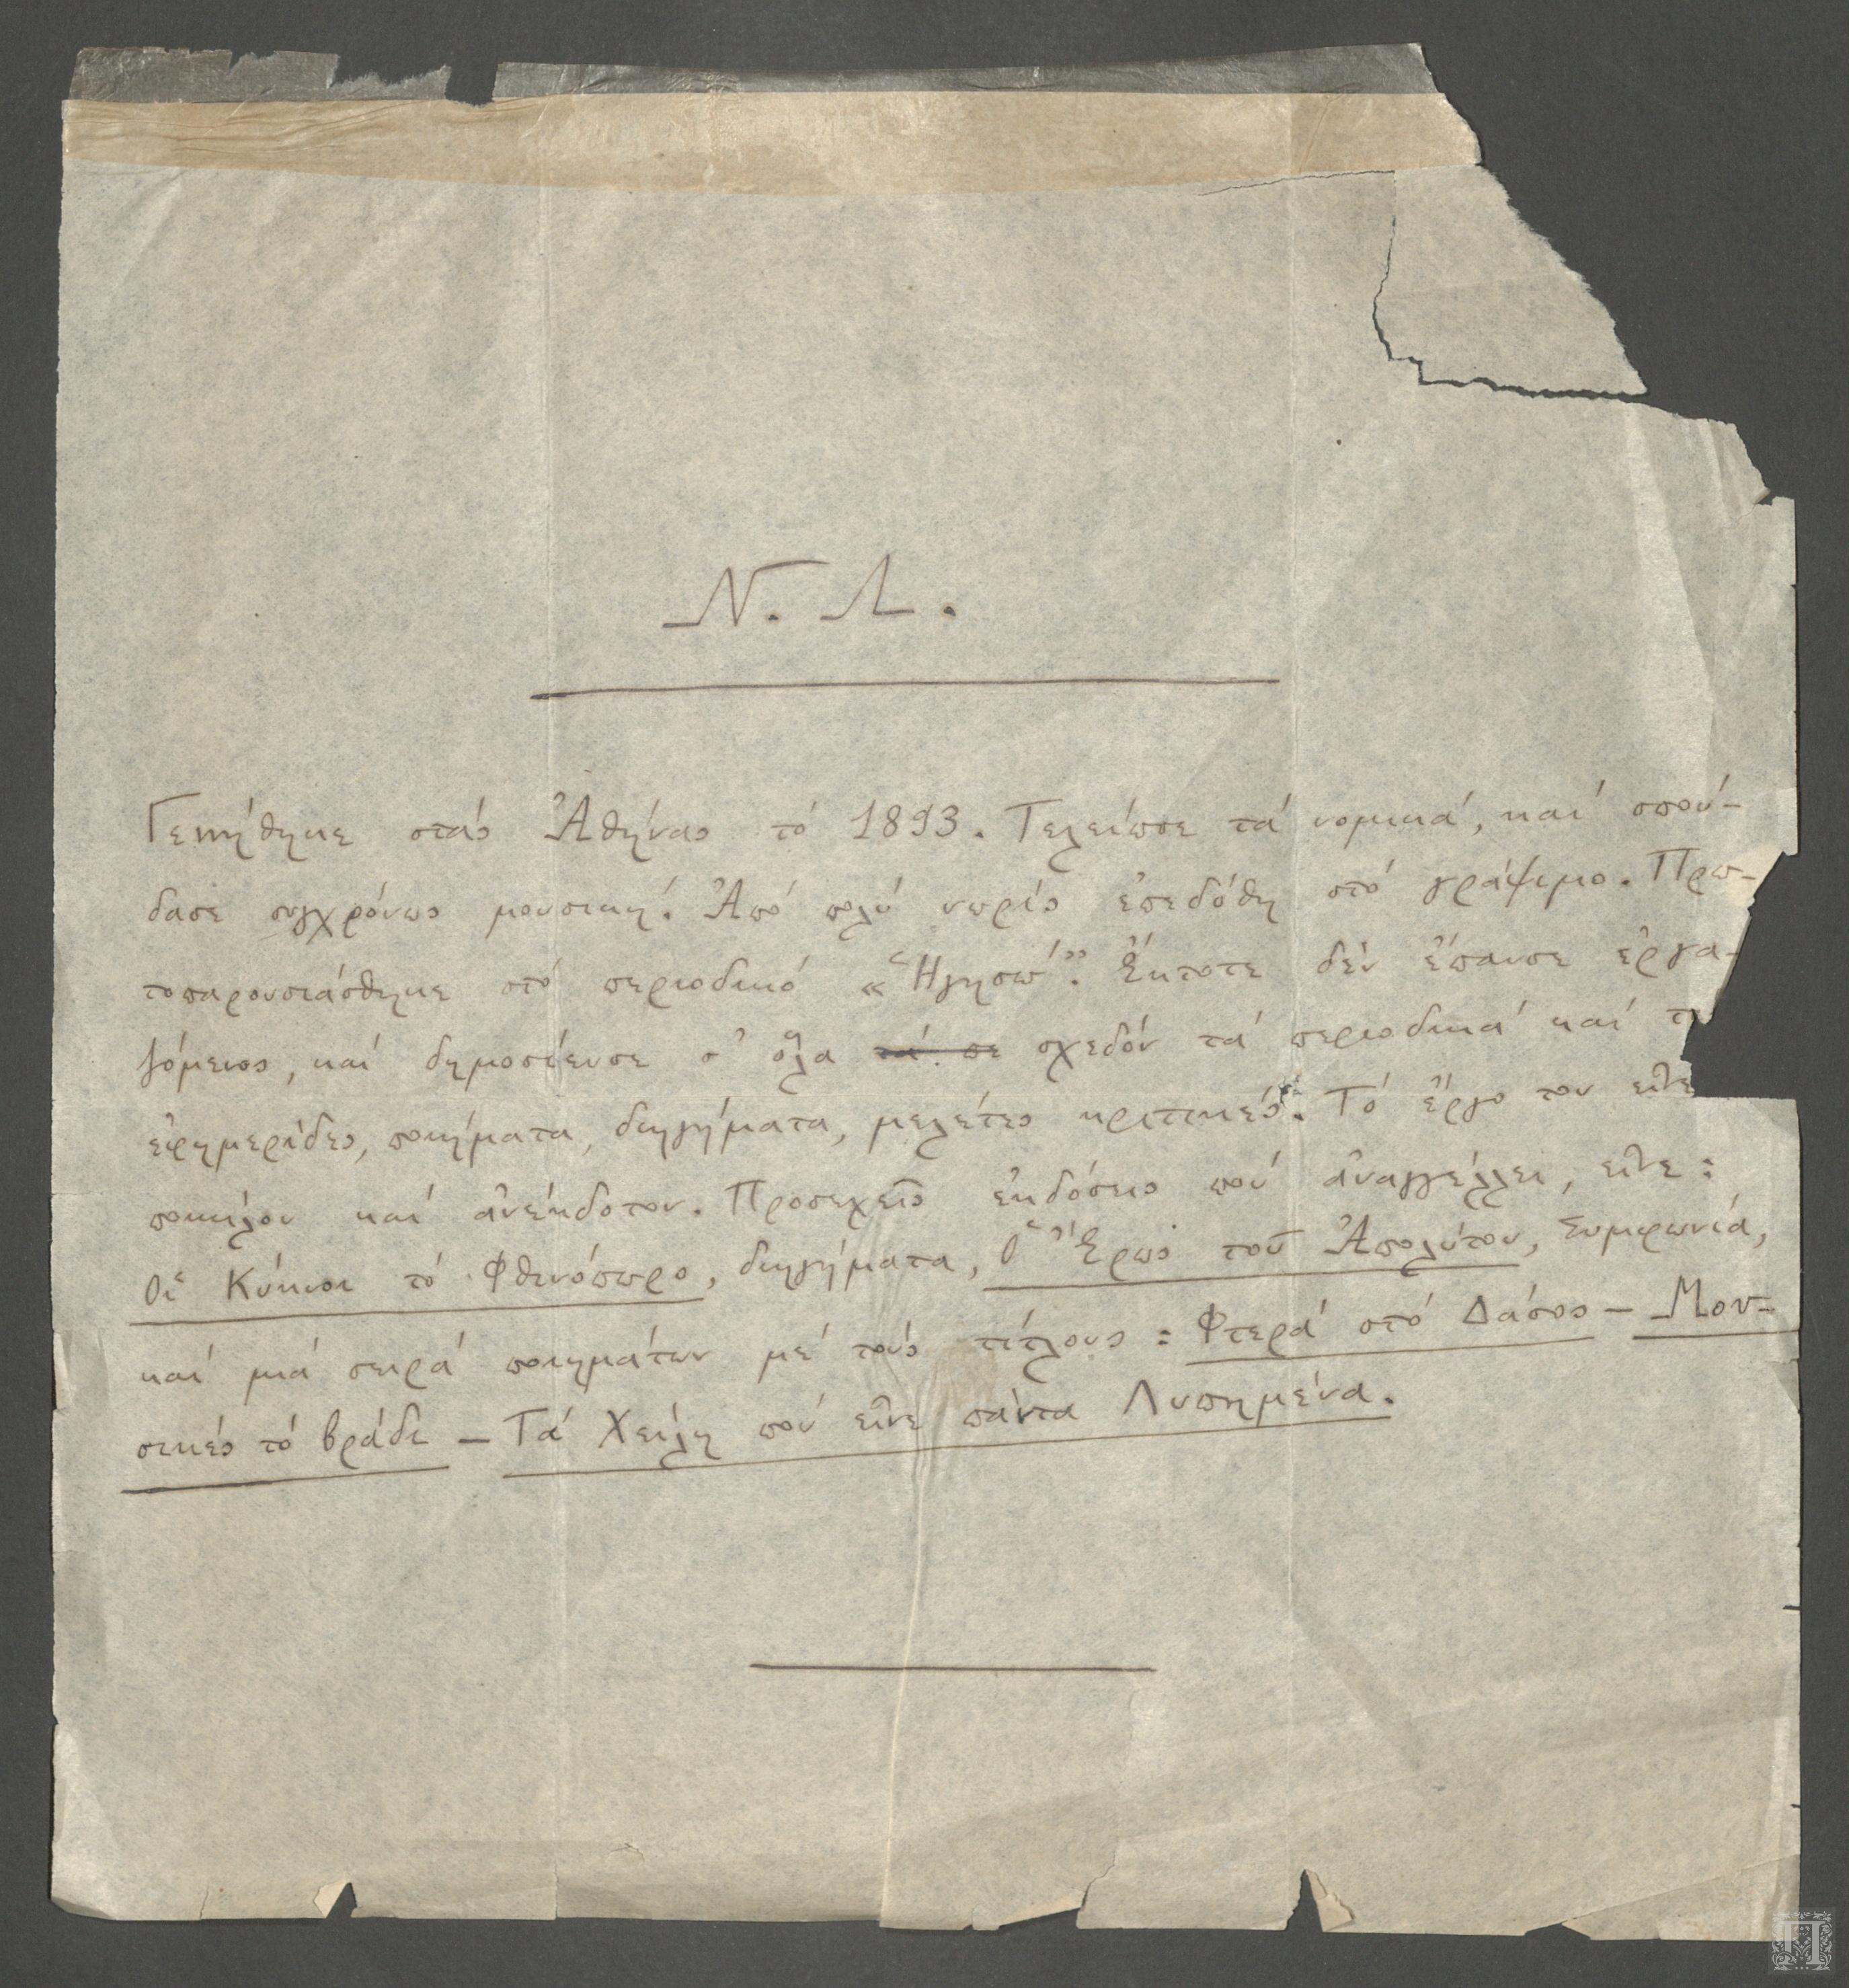 Ν. Λ.
Γεννήθηκε στὰς Ἀθήνας τό 1893. Τελείωσε τά νομικά, καί σπού-
δασε συγχρόνως μουσική. Ἀπό πολύ νωρίς ἐπεδόθη στό γράψιμο. Πρω-
τοπαρουσιάσθηκε στό περιοδικό «Ἡγησώ». Ἔκτοτε δέν ἔπαυσε ἐργα-
ζόμενος, καί δημοσίευσε σ' ὅλα τά πε σχεδόν τά περιοδικά καί
ἐφημερίδες, ποιήματα, διηγήματα, μελέτες κριτικές. Τό ἔργο του εἶνε
ποικίλον καί ἀνέκδοτον. Προσεχεῖς ἐκδόσεις πού ἀναγγέλλει, εἶνε:
Οἱ Κύκνοι τό Φθινόπωρο, διηγήματα, Ὁ Ἔρως τοῦ Ἀπολύτου, Συμφωνία,
καί μιά σειρά ποιημάτων μέ τούς τίτλους: Φτερά στό Δάσος – Μου-
σικές τό βράδυ – Τά Χείλη πού εἶνε πάντα Λυπημένα.